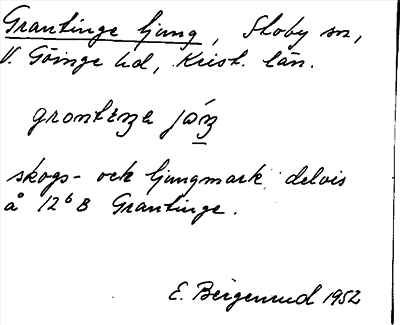 Grantinge ljung, Stoby sn,
V. Göinge hd, Krist. län.
skogs- och ljungmark delvis
å 12⁶ 8 Grantinge.
E. Bergerund 1952